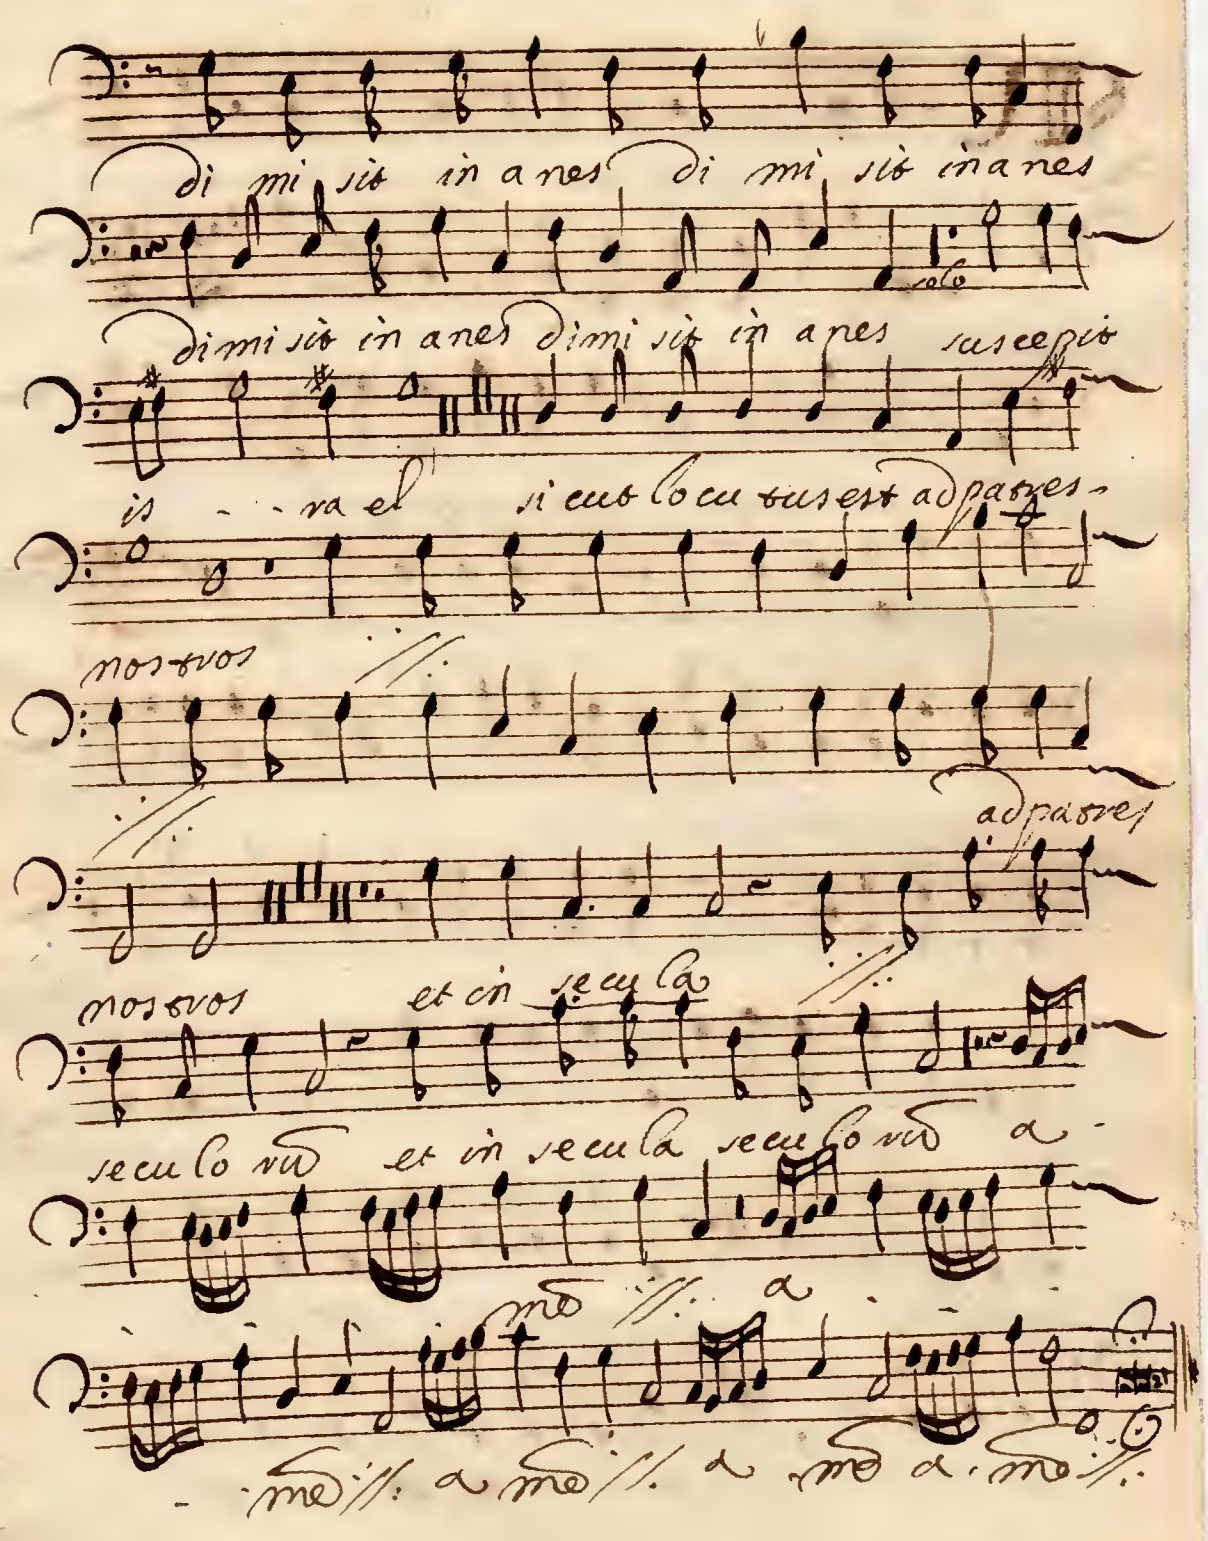 di mi sit in a nes di mi sit in a nes
solo
di mi sit in a nes di mi sit in a nes suscepit
is - - ra el si cut lo cu tus est ad patres -
nostros //.
//. ad patres
nostros et in se cu la //.
se cu lo rũ et in se cu la se cu lo rũ a -
mẽ //. a - -
- mẽ //. a mẽ //. a mẽ a. mẽ //.